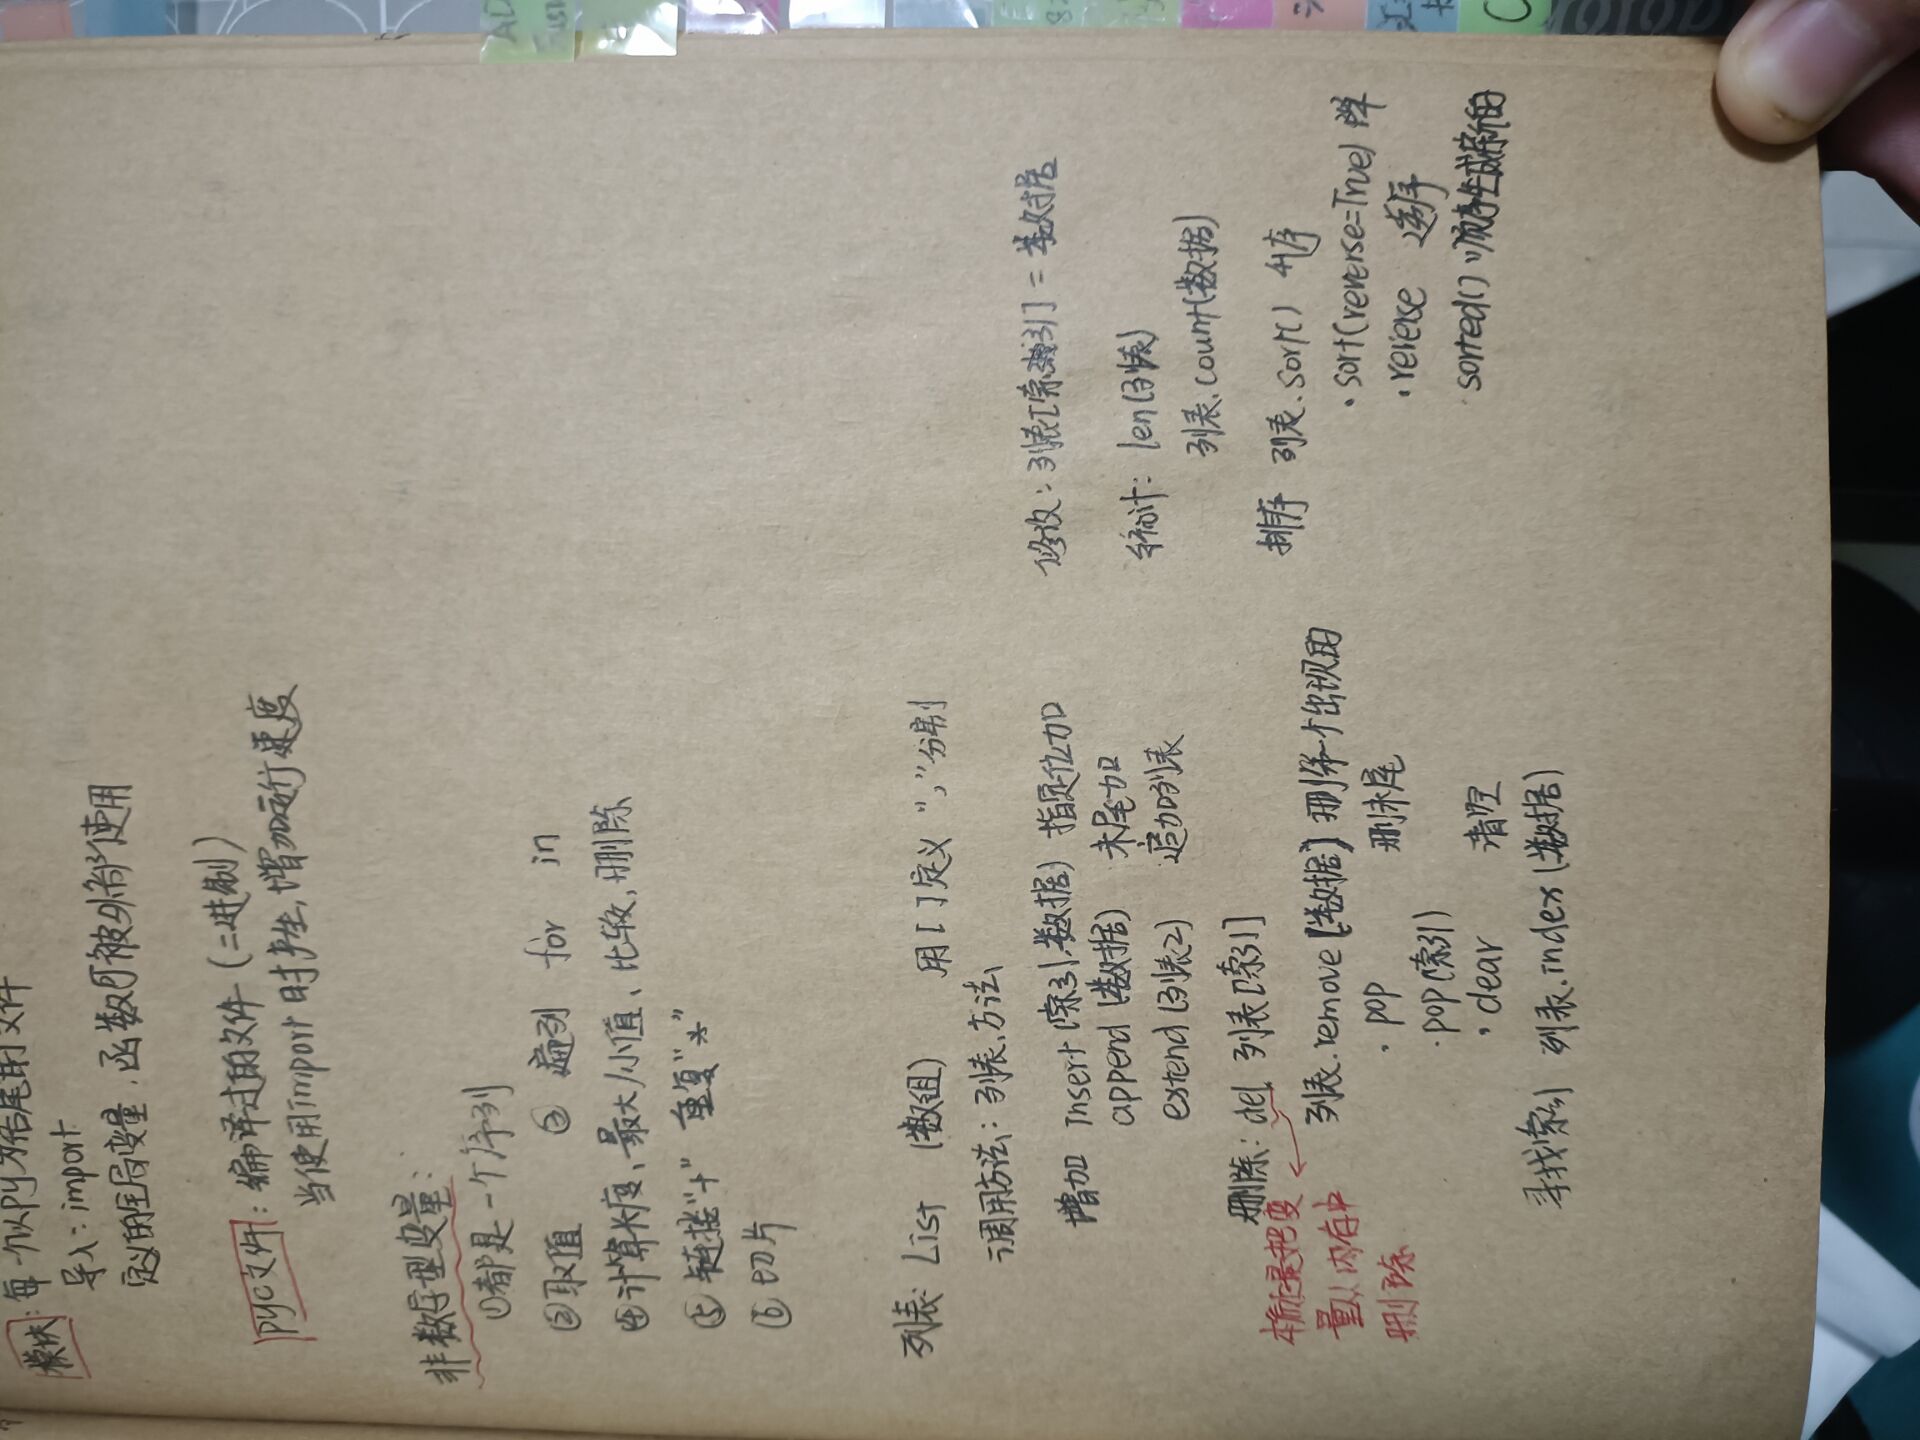 模块: 每一个以py为结尾的文件
导入: import
定义的全局变量、函数可被外部使用
pyc文件: 编译过的文件 (二进制)
当使用import时产生, 增加运行速度
非数字型变量:
①都是一个序列
②取值 ③ 遍列 for in
④计算长度、最大/小值、比较, 删除
⑤ 链接"+" 重复"*"
⑥ 切片
列表: List (数组) 用[ ]定义 ","分割
调用方法: 列表.方法
增加 insert(索引,数据) 指定位加
append(数据) 末尾加
extend(列表2) 追加列表
删除: del 列表[索引]
本质是把变
量从内存中
删除
列表.remove[数据] 删第一个出现的
.pop 删末尾
.pop(索引)
.clear 清空
寻找索引 列表.index(数据)
修改: 列表[索引] = 数据
统计: len(列表)
列表.count(数据)
排序 列表.sort() 升序
.sort(reverse=True) 降
.reverse 逆序
sorted() 顺序生成新的
AD
C